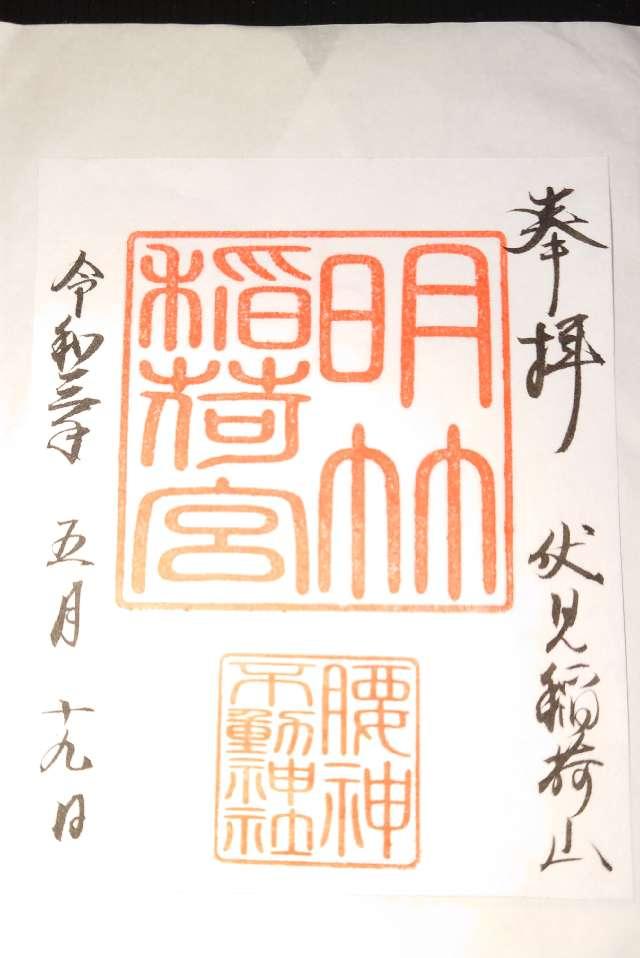 奉拝　伏見稲荷山
明竹
稲荷宮
腰神
不動神社
令和三年　五月　十九日